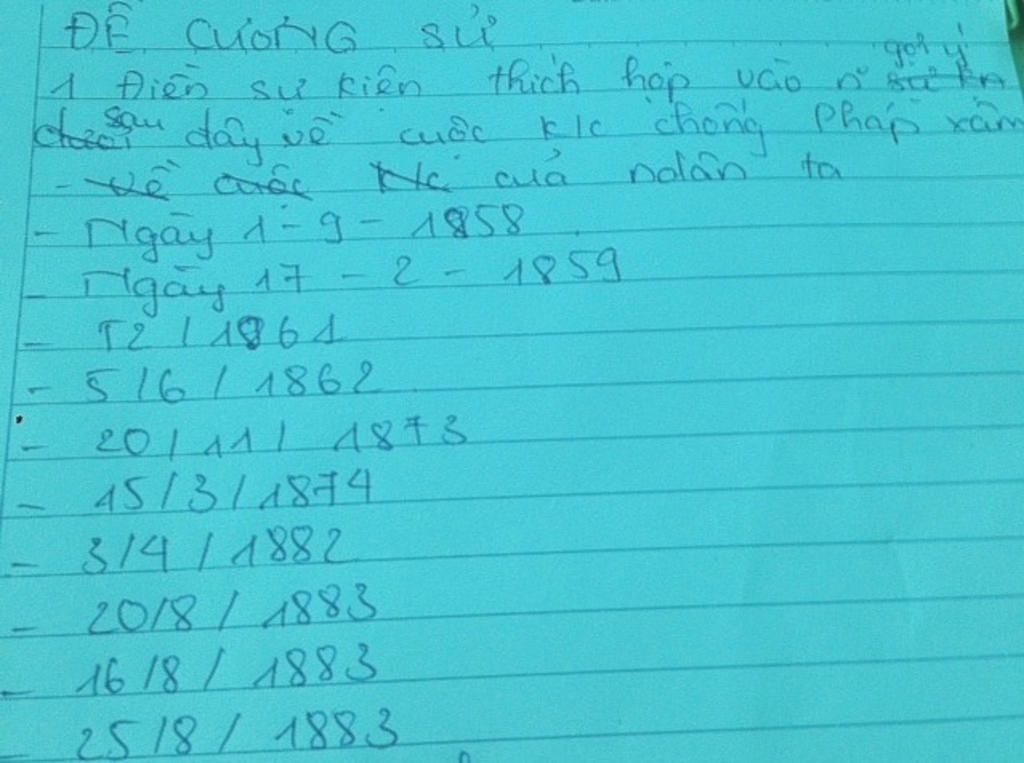 ĐỀ CƯƠNG SỬ
gợi ý
1 Điền sự kiện thích hợp vào n~ sự kn
sau
dưới đây về cuộc k/c chống Pháp xâm
- về cuộc k/c của ndân ta
- Ngày 1-9-1858
- Ngày 17-2-1859
- T2/1861
- 5/6/1862
- 20/11/1873
- 15/3/1874
- 3/4/1882
- 20/8/1883
- 16/8/1883
- 25/8/1883